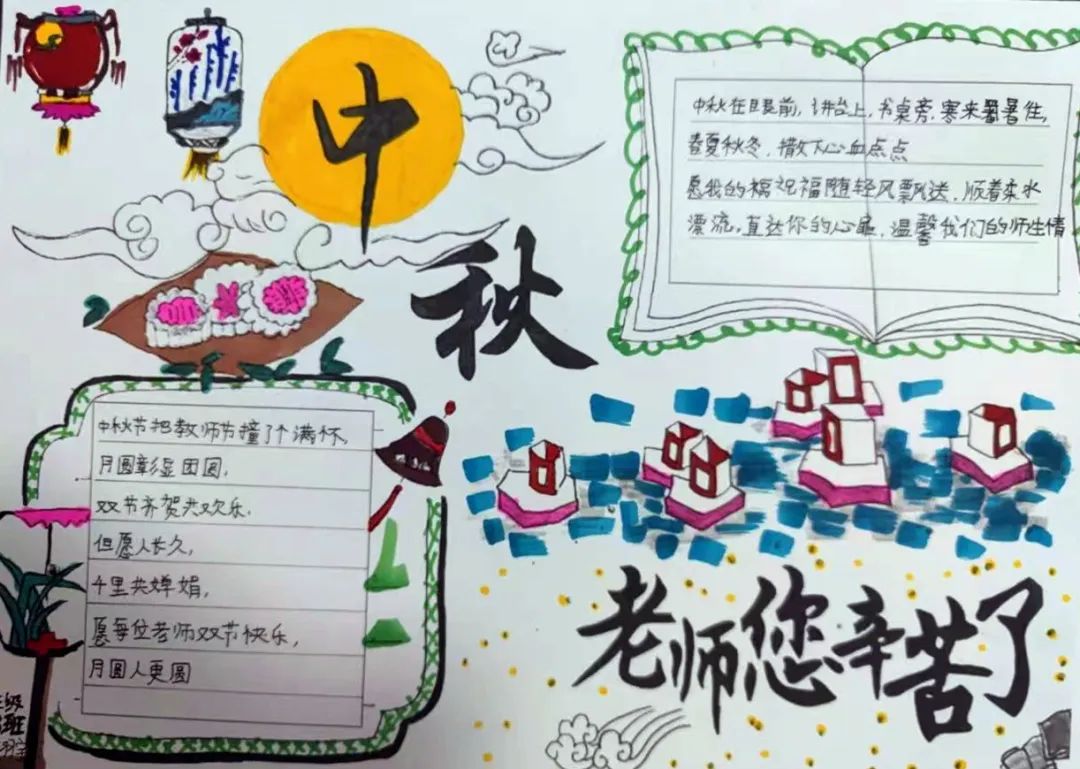 中
秋
中秋在眼前，讲台上，书桌旁，寒来暑暑往，
春夏秋冬，撒下心血点点
愿我的祝祝福随轻风飘送，顺着柔水
漂流，直达你的心扉，温馨我们的师生情
中秋节把教师节撞了个满杯，
月圆彰显团圆，
双节齐贺共欢乐，
但愿人长久，
千里共婵娟，
愿每位老师双节快乐，
月圆人更圆
老师您辛苦了
级
班